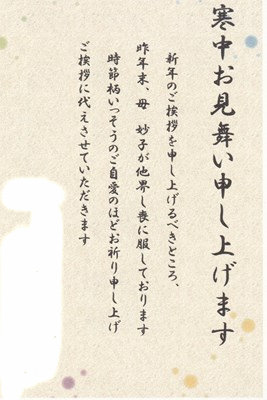 寒中お見舞い申し上げます
新年のご挨拶を申し上げるべきところ、
昨年末、母 妙子が他界し喪に服しております
時節柄いっそうのご自愛のほどお祈り申し上げ
ご挨拶に代えさせていただきます